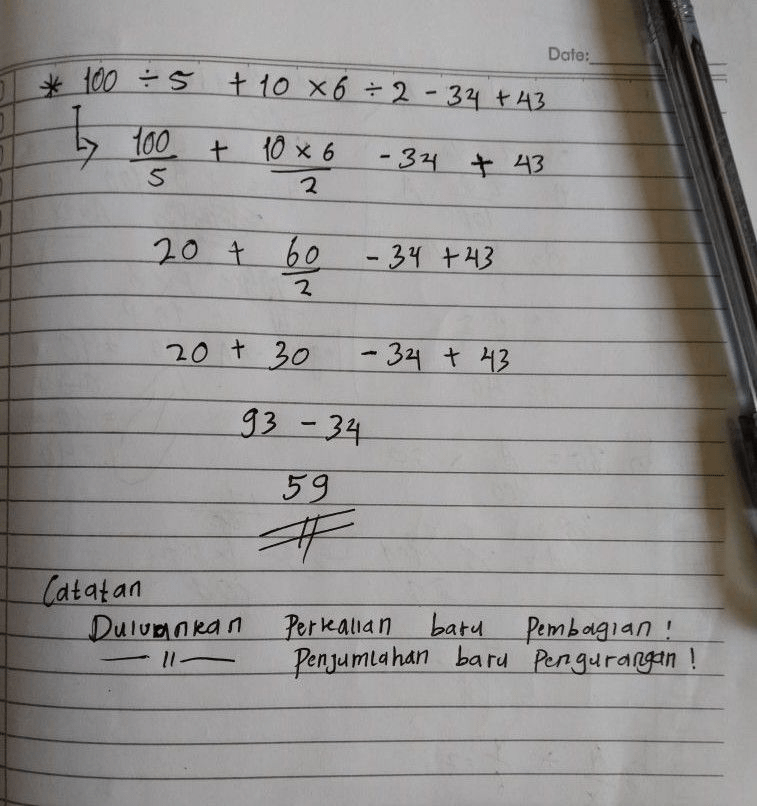 Date:
* 100 ÷ 5 + 10 × 6 ÷ 2 - 34 + 43
↳ 100/5 + 10 × 6/2 - 34 + 43
20 + 60/2 - 34 + 43
20 + 30 - 34 + 43
93 - 34
59
Catatan
Duluankan Perkalian baru Pembagian !
— 11 — Penjumlahan baru Pengurangan !